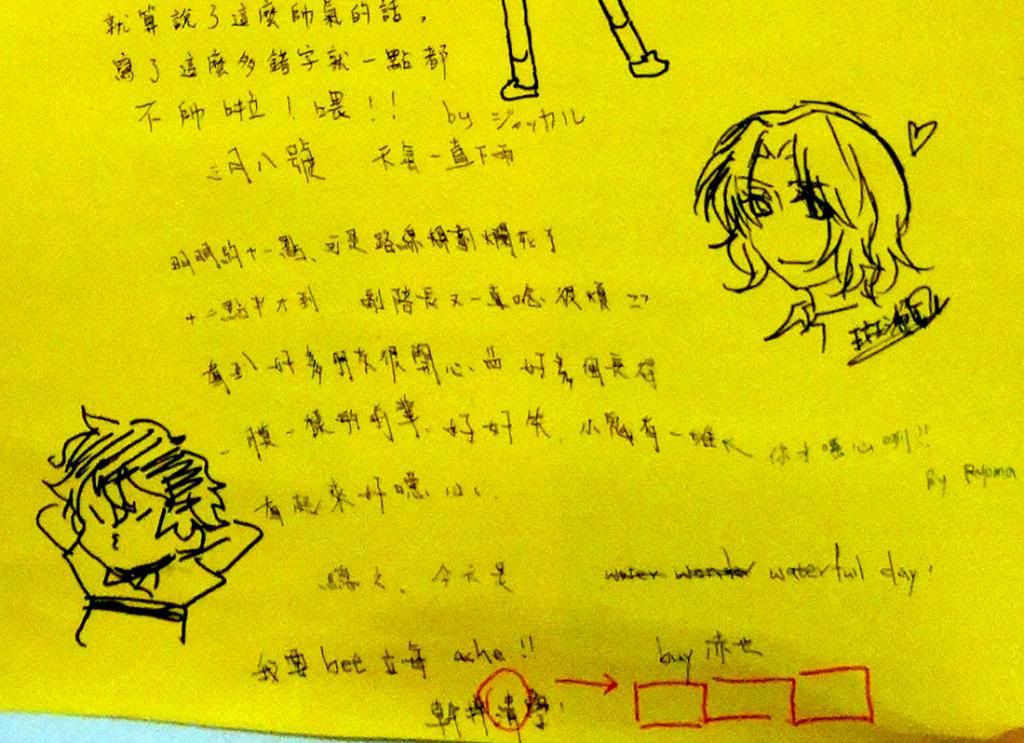 就算說了這麼帥氣的話,
寫了這麼多錯字就一點都
不帥啦!喂!! by ジャッカル
三月八號 天氣一直下雨
明明約十一點、可是路線規劃爛死了
十二點半才到 副隊長又一直唸 很煩
看到好多朋友很開心、 好多個長得
一模一樣的前輩、好好笑、小鬼有一堆
看起來好噁心、
你才噁心咧!!
By Ryoma
總之、今天是 water wonder waterfull day.
我要 bee 立海 ache!!
buy 赤也
幹掉清學!